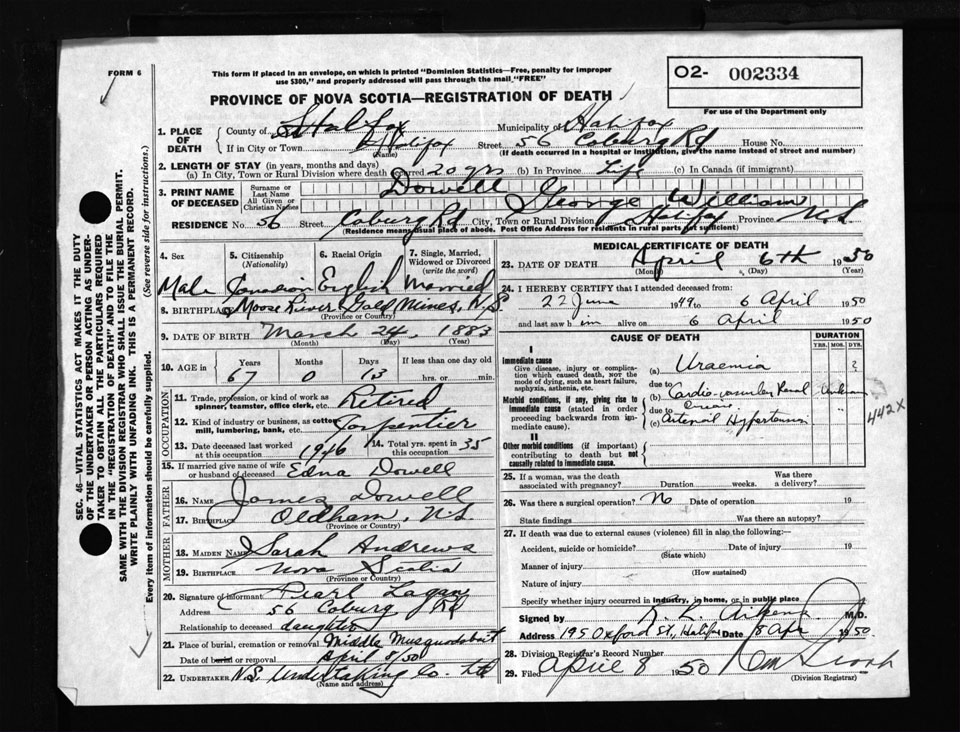 FORM 6
This form if placed in an envelope, on which is printed "Dominion Statistics—Free, penalty for improper
use $300," and properly addressed will pass through the mail "FREE"
O2- 002334
For use of Department only
PROVINCE OF NOVA SCOTIA—REGISTRATION OF DEATH
1. PLACE OF DEATH
County of Halifax Municipality of Halifax
If in City or Town Halifax Street 56 Coburg Rd House No.
(Name) (If death occurred in a hospital or institution, give the name instead of street and number)
2. LENGTH OF STAY (in years, months and days)
(a) In City, Town or Rural Division where death occurred 20 yrs (b) In Province Life (c) In Canada (if immigrant)
3. PRINT NAME OF DECEASED
Surname or Last Name Dowell
All Given or Christian Names George William
RESIDENCE No. 56 Street Coburg Rd City, Town or Rural Division Halifax Province N.S.
(Residence means usual place of abode. Post Office Address for residents in rural parts not sufficient)
4. Sex 5. Citizenship (Nationality) 6. Racial Origin 7. Single, Married, Widowed or Divorced (write the word)
Male Canadian English Married
8. BIRTHPLACE Moose River Gold Mines, N.S.
(Province or Country)
9. DATE OF BIRTH March 24, 1883
(Month) (Day) (Year)
10. AGE in Years Months Days If less than one day old
67 0 13 hrs. or min.
OCCUPATION
11. Trade, profession, or kind of work as spinner, teamster, office clerk, etc. Retired
12. Kind of industry or business, as cotton mill, lumbering, bank, etc. Carpentier
13. Date deceased last worked at this occupation 1946 14. Total yrs. spent in 35
15. If married give name of wife or husband of deceased Edna Dowell
FATHER
16. NAME James Dowell
17. Birthplace Oldham, N.S.
(Province or Country)
MOTHER
18. MAIDEN NAME Sarah Andrews
19. BIRTHPLACE Nova Scotia
(Province or Country)
20. Signature of informant Pearl
Address 56 Coburg Rd
Relationship to deceased daughter
21. Place of burial, cremation or removal Middle Musquodoboit
Date of burial or removal April 8/50
22. UNDERTAKER N.S. Undertaking Co. Ltd
(Name and address)
MEDICAL CERTIFICATE OF DEATH
23. DATE OF DEATH April 6th 1950
(Month) (Day) (Year)
24. I HEREBY CERTIFY that I attended deceased from:
22 June 1949 to 6 April 1950
and last saw him alive on 6 April 1950
CAUSE OF DEATH DURATION
YRS. MOS. DYS.
I
Immediate cause
Give disease, injury or complication which caused death, NOT the mode of dying, such as heart failure, asphyxia, asthenia, etc.
(a) Uraemia ?
due to
Morbid conditions, if any, giving rise to immediate cause (stated in order proceeding backwards from immediate cause).
(b) Cardio-vascular Renal
due to
(c) Arterial Hypertension
442X
II
Other morbid conditions (if important) contributing to death but not causally related to immediate cause.
25. If a woman, was the death associated with pregnancy? Duration weeks. Was there a delivery?
26. Was there a surgical operation? No Date of operation 19
State findings Was there an autopsy?
27. If death was due to external causes (violence) fill in also the following:
Accident, suicide or homicide? Date of injury 19
(State which)
Manner of injury
(How sustained)
Nature of injury
Specify whether injury occurred in industry, in home, or in public place
Signed by R. L. Aikens M.D.
Address 195 Oxford St, Halifax Date 8 Apr 1950.
28. Division Registrar's Record Number
29. Filed April 8 1950
(Division Registrar)
SEC. 46 VITAL STATISTICS ACT MAKES IT THE DUTY
OF THE UNDERTAKER OR PERSON ACTING AS UNDER-
TAKER TO OBTAIN ALL THE PARTICULARS REQUIRED
IN THE "REGISTRATION OF DEATH" AND TO FILE THE
SAME WITH THE DIVISION REGISTRAR WHO SHALL ISSUE THE BURIAL PERMIT.
WRITE PLAINLY WITH UNFADING INK. THIS IS A PERMANENT RECORD.
Every item of information should be carefully supplied. (See reverse side for instructions.)